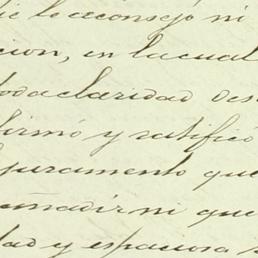 le aconsejó ni
cion, en la cual
toda claridad des
firmó y ratificó
juramento que
añadir ni que
dad y espaciosa